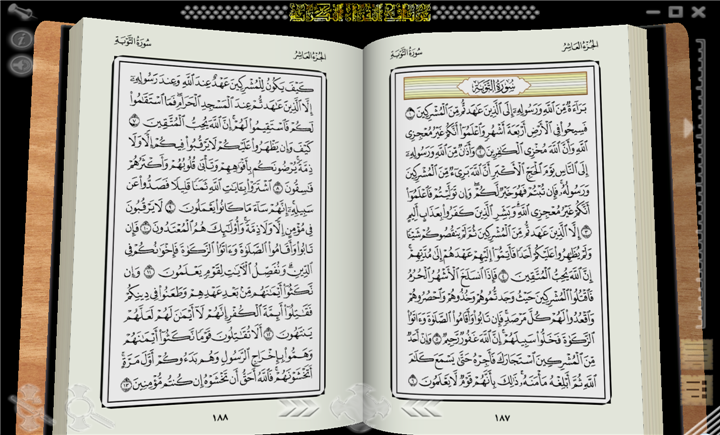 سُورَةُ التَّوْبَةِ
الجُزْءُ العَاشِرُ
سُورَةُ التَّوْبَةِ
بَرَآءَةٌ مِّنَ ٱللَّهِ وَرَسُولِهِۦٓ إِلَى ٱلَّذِينَ عَٰهَدتُّم مِّنَ ٱلْمُشْرِكِينَ ١
فَسِيحُوا۟ فِى ٱلْأَرْضِ أَرْبَعَةَ أَشْهُرٍ وَٱعْلَمُوٓا۟ أَنَّكُمْ غَيْرُ مُعْجِزِى
ٱللَّهِ وَأَنَّ ٱللَّهَ مُخْزِى ٱلْكَٰفِرِينَ ٢ وَأَذَٰنٌ مِّنَ ٱللَّهِ وَرَسُولِهِۦٓ
إِلَى ٱلنَّاسِ يَوْمَ ٱلْحَجِّ ٱلْأَكْبَرِ أَنَّ ٱللَّهَ بَرِىٓءٌ مِّنَ ٱلْمُشْرِكِينَ
وَرَسُولُهُۥ فَإِن تُبْتُمْ فَهُوَ خَيْرٌ لَّكُمْ وَإِن تَوَلَّيْتُمْ فَٱعْلَمُوٓا۟
أَنَّكُمْ غَيْرُ مُعْجِزِى ٱللَّهِ وَبَشِّرِ ٱلَّذِينَ كَفَرُوا۟ بِعَذَابٍ أَلِيمٍ
٣ إِلَّا ٱلَّذِينَ عَٰهَدتُّم مِّنَ ٱلْمُشْرِكِينَ ثُمَّ لَمْ يَنقُصُوكُمْ شَيْـًٔا
وَلَمْ يُظَٰهِرُوا۟ عَلَيْكُمْ أَحَدًا فَأَتِمُّوٓا۟ إِلَيْهِمْ عَهْدَهُمْ إِلَىٰ مُدَّتِهِمْ
إِنَّ ٱللَّهَ يُحِبُّ ٱلْمُتَّقِينَ ٤ فَإِذَا ٱنسَلَخَ ٱلْأَشْهُرُ ٱلْحُرُمُ
فَٱقْتُلُوا۟ ٱلْمُشْرِكِينَ حَيْثُ وَجَدتُّمُوهُمْ وَخُذُوهُمْ وَٱحْصُرُوهُمْ
وَٱقْعُدُوا۟ لَهُمْ كُلَّ مَرْصَدٍ فَإِن تَابُوا۟ وَأَقَامُوا۟ ٱلصَّلَوٰةَ وَءَاتَوُا۟
ٱلزَّكَوٰةَ فَخَلُّوا۟ سَبِيلَهُمْ إِنَّ ٱللَّهَ غَفُورٌ رَّحِيمٌ ٥ وَإِنْ أَحَدٌ
مِّنَ ٱلْمُشْرِكِينَ ٱسْتَجَارَكَ فَأَجِرْهُ حَتَّىٰ يَسْمَعَ كَلَٰمَ
ٱللَّهِ ثُمَّ أَبْلِغْهُ مَأْمَنَهُۥ ذَٰلِكَ بِأَنَّهُمْ قَوْمٌ لَّا يَعْلَمُونَ ٦
١٨٧
الجُزْءُ العَاشِرُ
سُورَةُ التَّوْبَةِ
كَيْفَ يَكُونُ لِلْمُشْرِكِينَ عَهْدٌ عِندَ ٱللَّهِ وَعِندَ رَسُولِهِۦٓ
إِلَّا ٱلَّذِينَ عَٰهَدتُّمْ عِندَ ٱلْمَسْجِدِ ٱلْحَرَامِ فَمَا ٱسْتَقَٰمُوا۟
لَكُمْ فَٱسْتَقِيمُوا۟ لَهُمْ إِنَّ ٱللَّهَ يُحِبُّ ٱلْمُتَّقِينَ ٧
كَيْفَ وَإِن يَظْهَرُوا۟ عَلَيْكُمْ لَا يَرْقُبُوا۟ فِيكُمْ إِلًّا وَلَا
ذِمَّةً يُرْضُونَكُم بِأَفْوَٰهِهِمْ وَتَأْبَىٰ قُلُوبُهُمْ وَأَكْثَرُهُمْ
فَٰسِقُونَ ٨ ٱشْتَرَوْا۟ بِـَٔايَٰتِ ٱللَّهِ ثَمَنًا قَلِيلًا فَصَدُّوا۟ عَن
سَبِيلِهِۦٓ إِنَّهُمْ سَآءَ مَا كَانُوا۟ يَعْمَلُونَ ٩ لَا يَرْقُبُونَ
فِى مُؤْمِنٍ إِلًّا وَلَا ذِمَّةً وَأُو۟لَٰٓئِكَ هُمُ ٱلْمُعْتَدُونَ ١٠ فَإِن
تَابُوا۟ وَأَقَامُوا۟ ٱلصَّلَوٰةَ وَءَاتَوُا۟ ٱلزَّكَوٰةَ فَإِخْوَٰنُكُمْ فِى
ٱلدِّينِ وَنُفَصِّلُ ٱلْـَٔايَٰتِ لِقَوْمٍ يَعْلَمُونَ ١١ وَإِن
نَّكَثُوٓا۟ أَيْمَٰنَهُم مِّنۢ بَعْدِ عَهْدِهِمْ وَطَعَنُوا۟ فِى دِينِكُمْ
فَقَٰتِلُوٓا۟ أَئِمَّةَ ٱلْكُفْرِ إِنَّهُمْ لَآ أَيْمَٰنَ لَهُمْ لَعَلَّهُمْ
يَنتَهُونَ ١٢ أَلَا تُقَٰتِلُونَ قَوْمًا نَّكَثُوٓا۟ أَيْمَٰنَهُمْ
وَهَمُّوا۟ بِإِخْرَاجِ ٱلرَّسُولِ وَهُم بَدَءُوكُمْ أَوَّلَ مَرَّةٍ
أَتَخْشَوْنَهُمْ فَٱللَّهُ أَحَقُّ أَن تَخْشَوْهُ إِن كُنتُم مُّؤْمِنِينَ ١٣
١٨٨